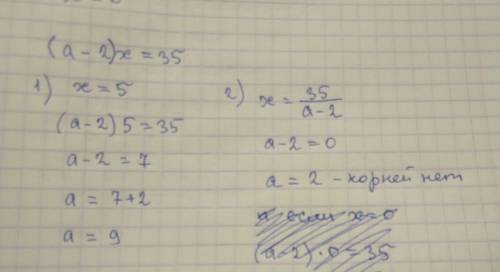 (a - 2)x = 35
1) x = 5
(a-2) 5 = 35
a - 2 = 7
a = 7+2
a = 9
2) x = 35/(a-2)
a-2 = 0
a = 2 - корней нет
если x=0
(a-2)·0=35